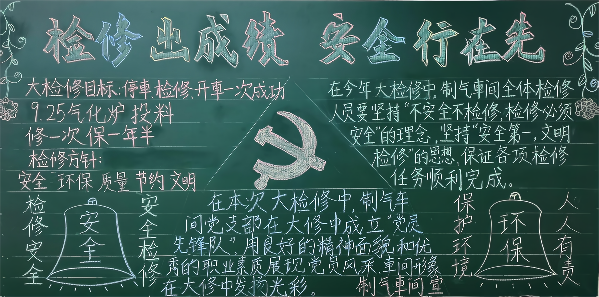 检修出成绩 安全行在先
大检修目标:停车检修、开车一次成功
9.25气化炉投料
修一次保一年半
检修方针:
安全 环保 质量 节约 文明
在今年大检修中,制气车间全体检修
人员要坚持“不安全不检修,检修必须
安全”的理念,坚持“安全第一,文明
检修”的思想、保证各项检修
任务顺利完成。
检修安全
安全
安全检修
在本次大检修中,制气车
间党支部在大修中成立“党员
先锋队”,用良好的精神面貌和优
秀的职业素质展现党员风采,车间形象
在大修中发扬光彩。
制气车间宣
保护环境
环保
人人有责